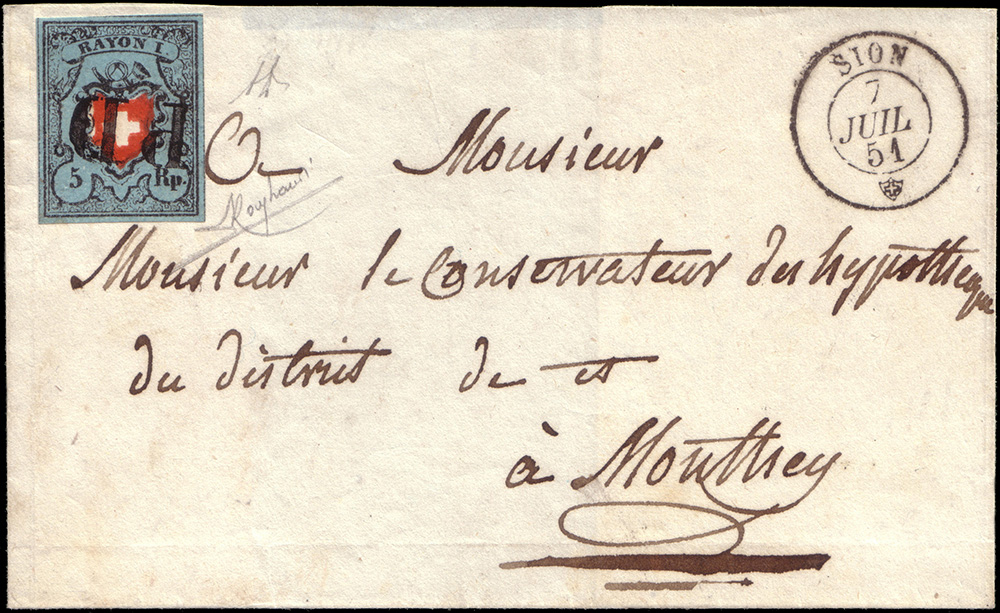 RAYON I.
P.P.
5 Rp.
SION
7
JUIL
51
A Monsieur
Monsieur le Conservateur des hypothèque
du district de et
à Monthey